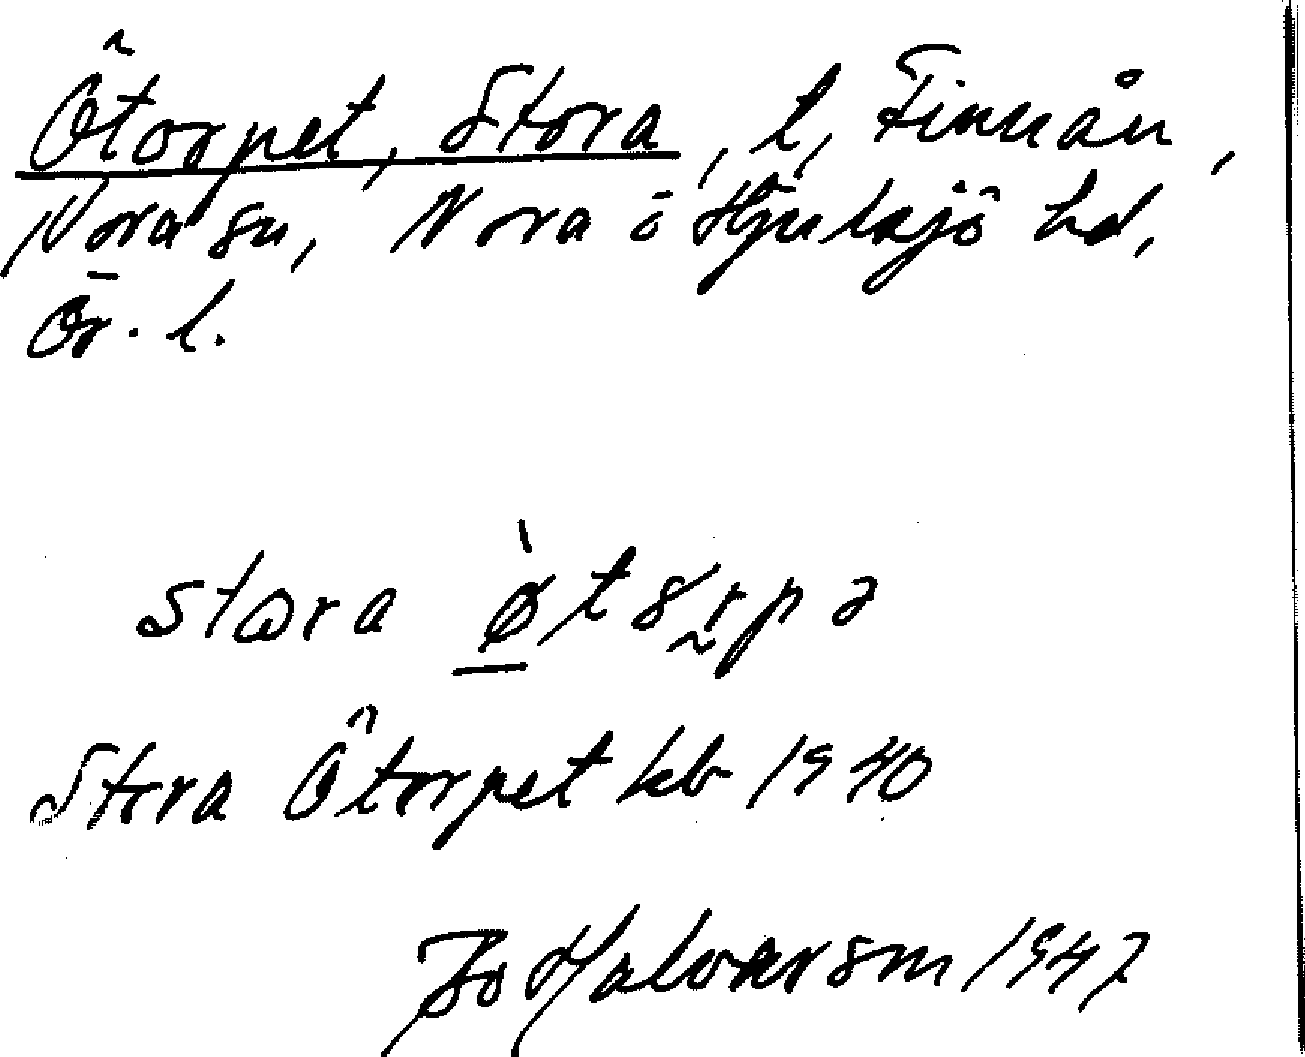 Ötorpet, Stora, t, Finnån,
Nora sn, Nora o Hjulsjö hd,
Ör. l.
stora øtorpə
Stora Ötorpet kb 1940
Halvarson 1947